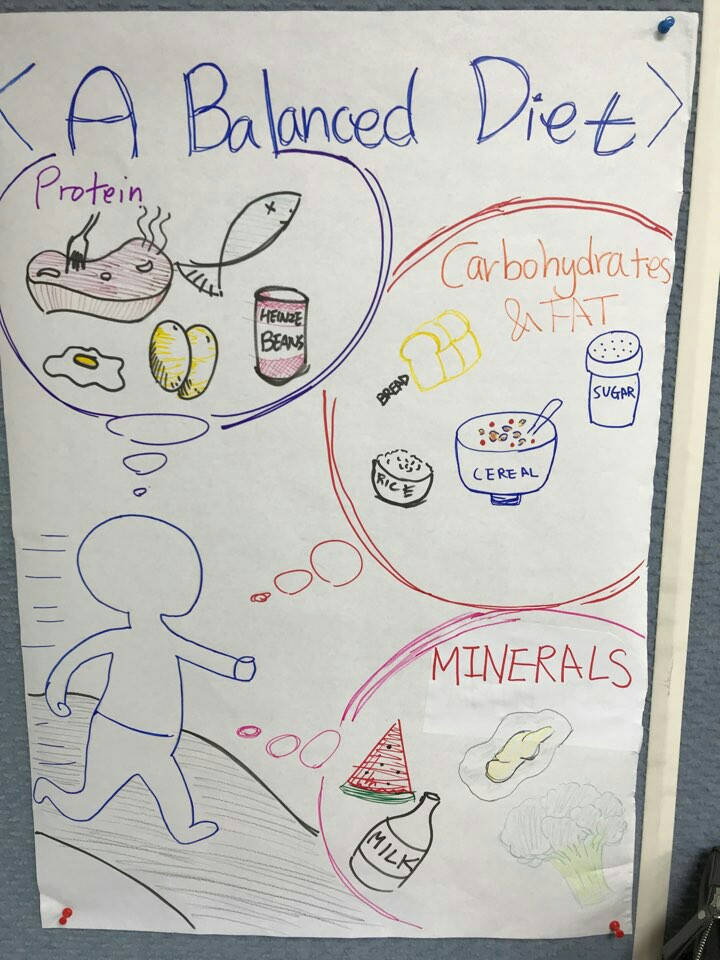 <A Balanced Diet>
Protein
HEINZE
BEANS
Carbohydrates
& FAT
BREAD
SUGAR
CEREAL
RICE
MINERALS
MILK